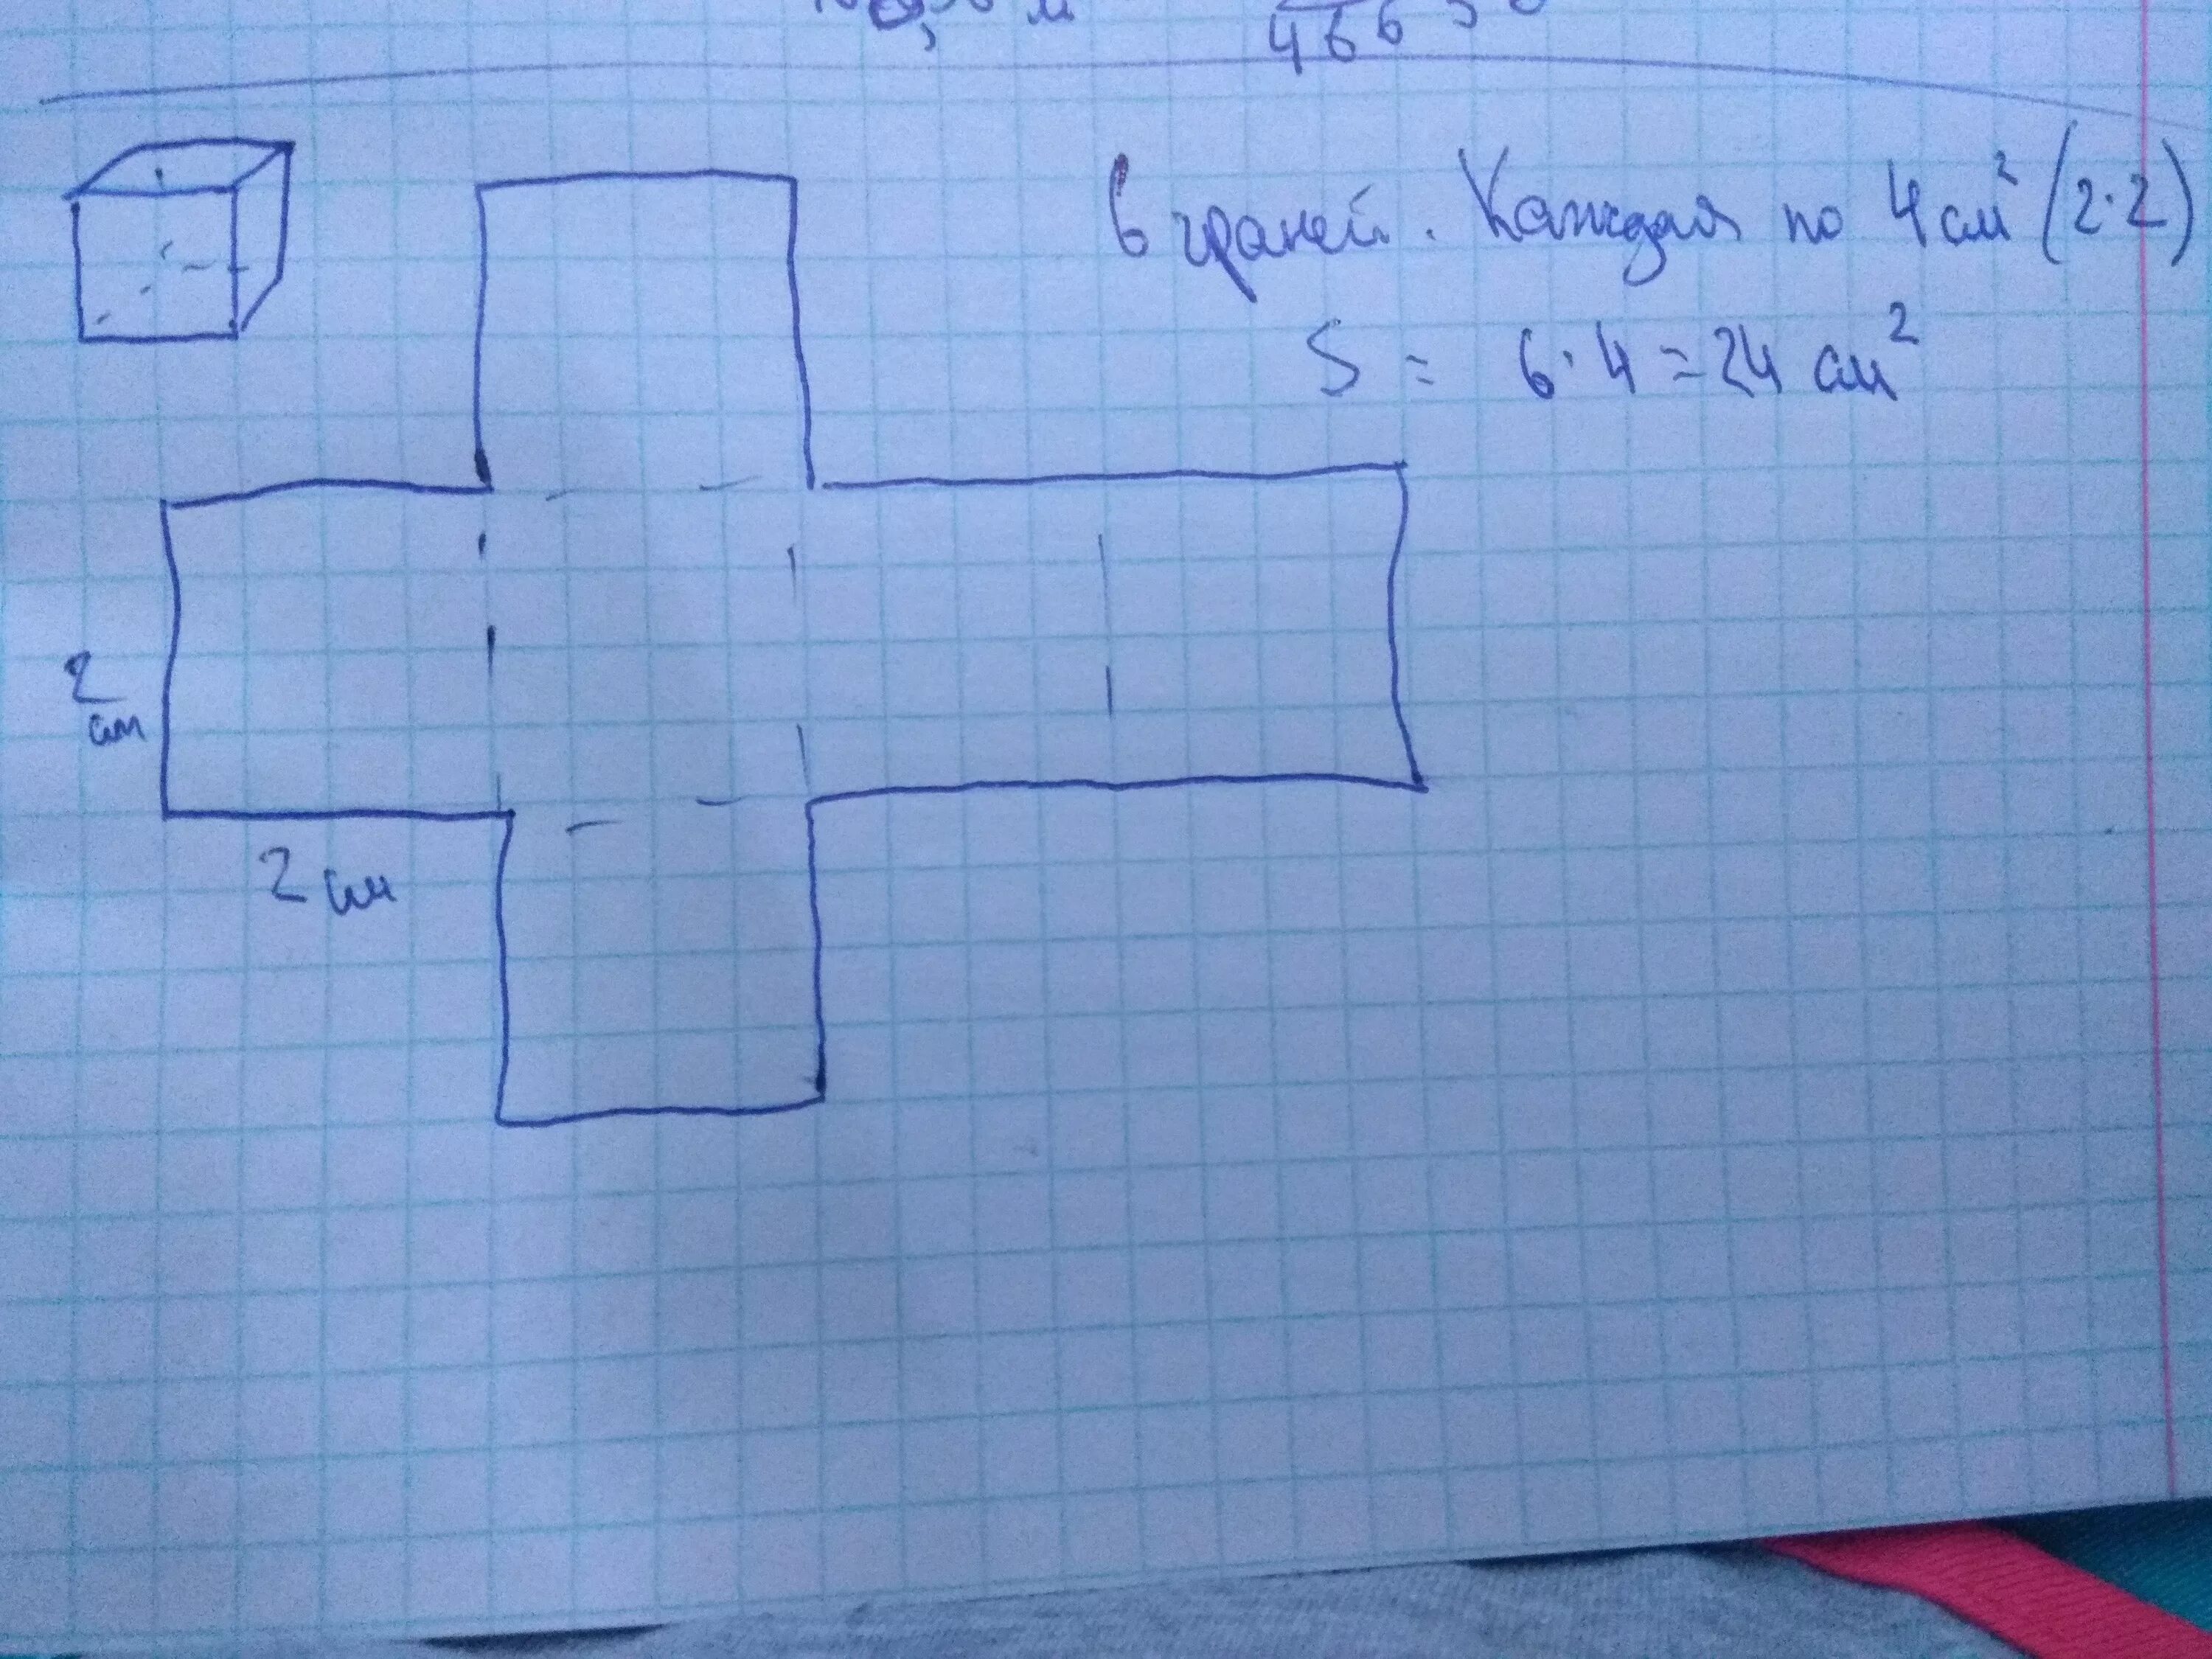 6 граней. Каждая по 4 см² (2·2)
S = 6·4=24 см²
2
см
2 см